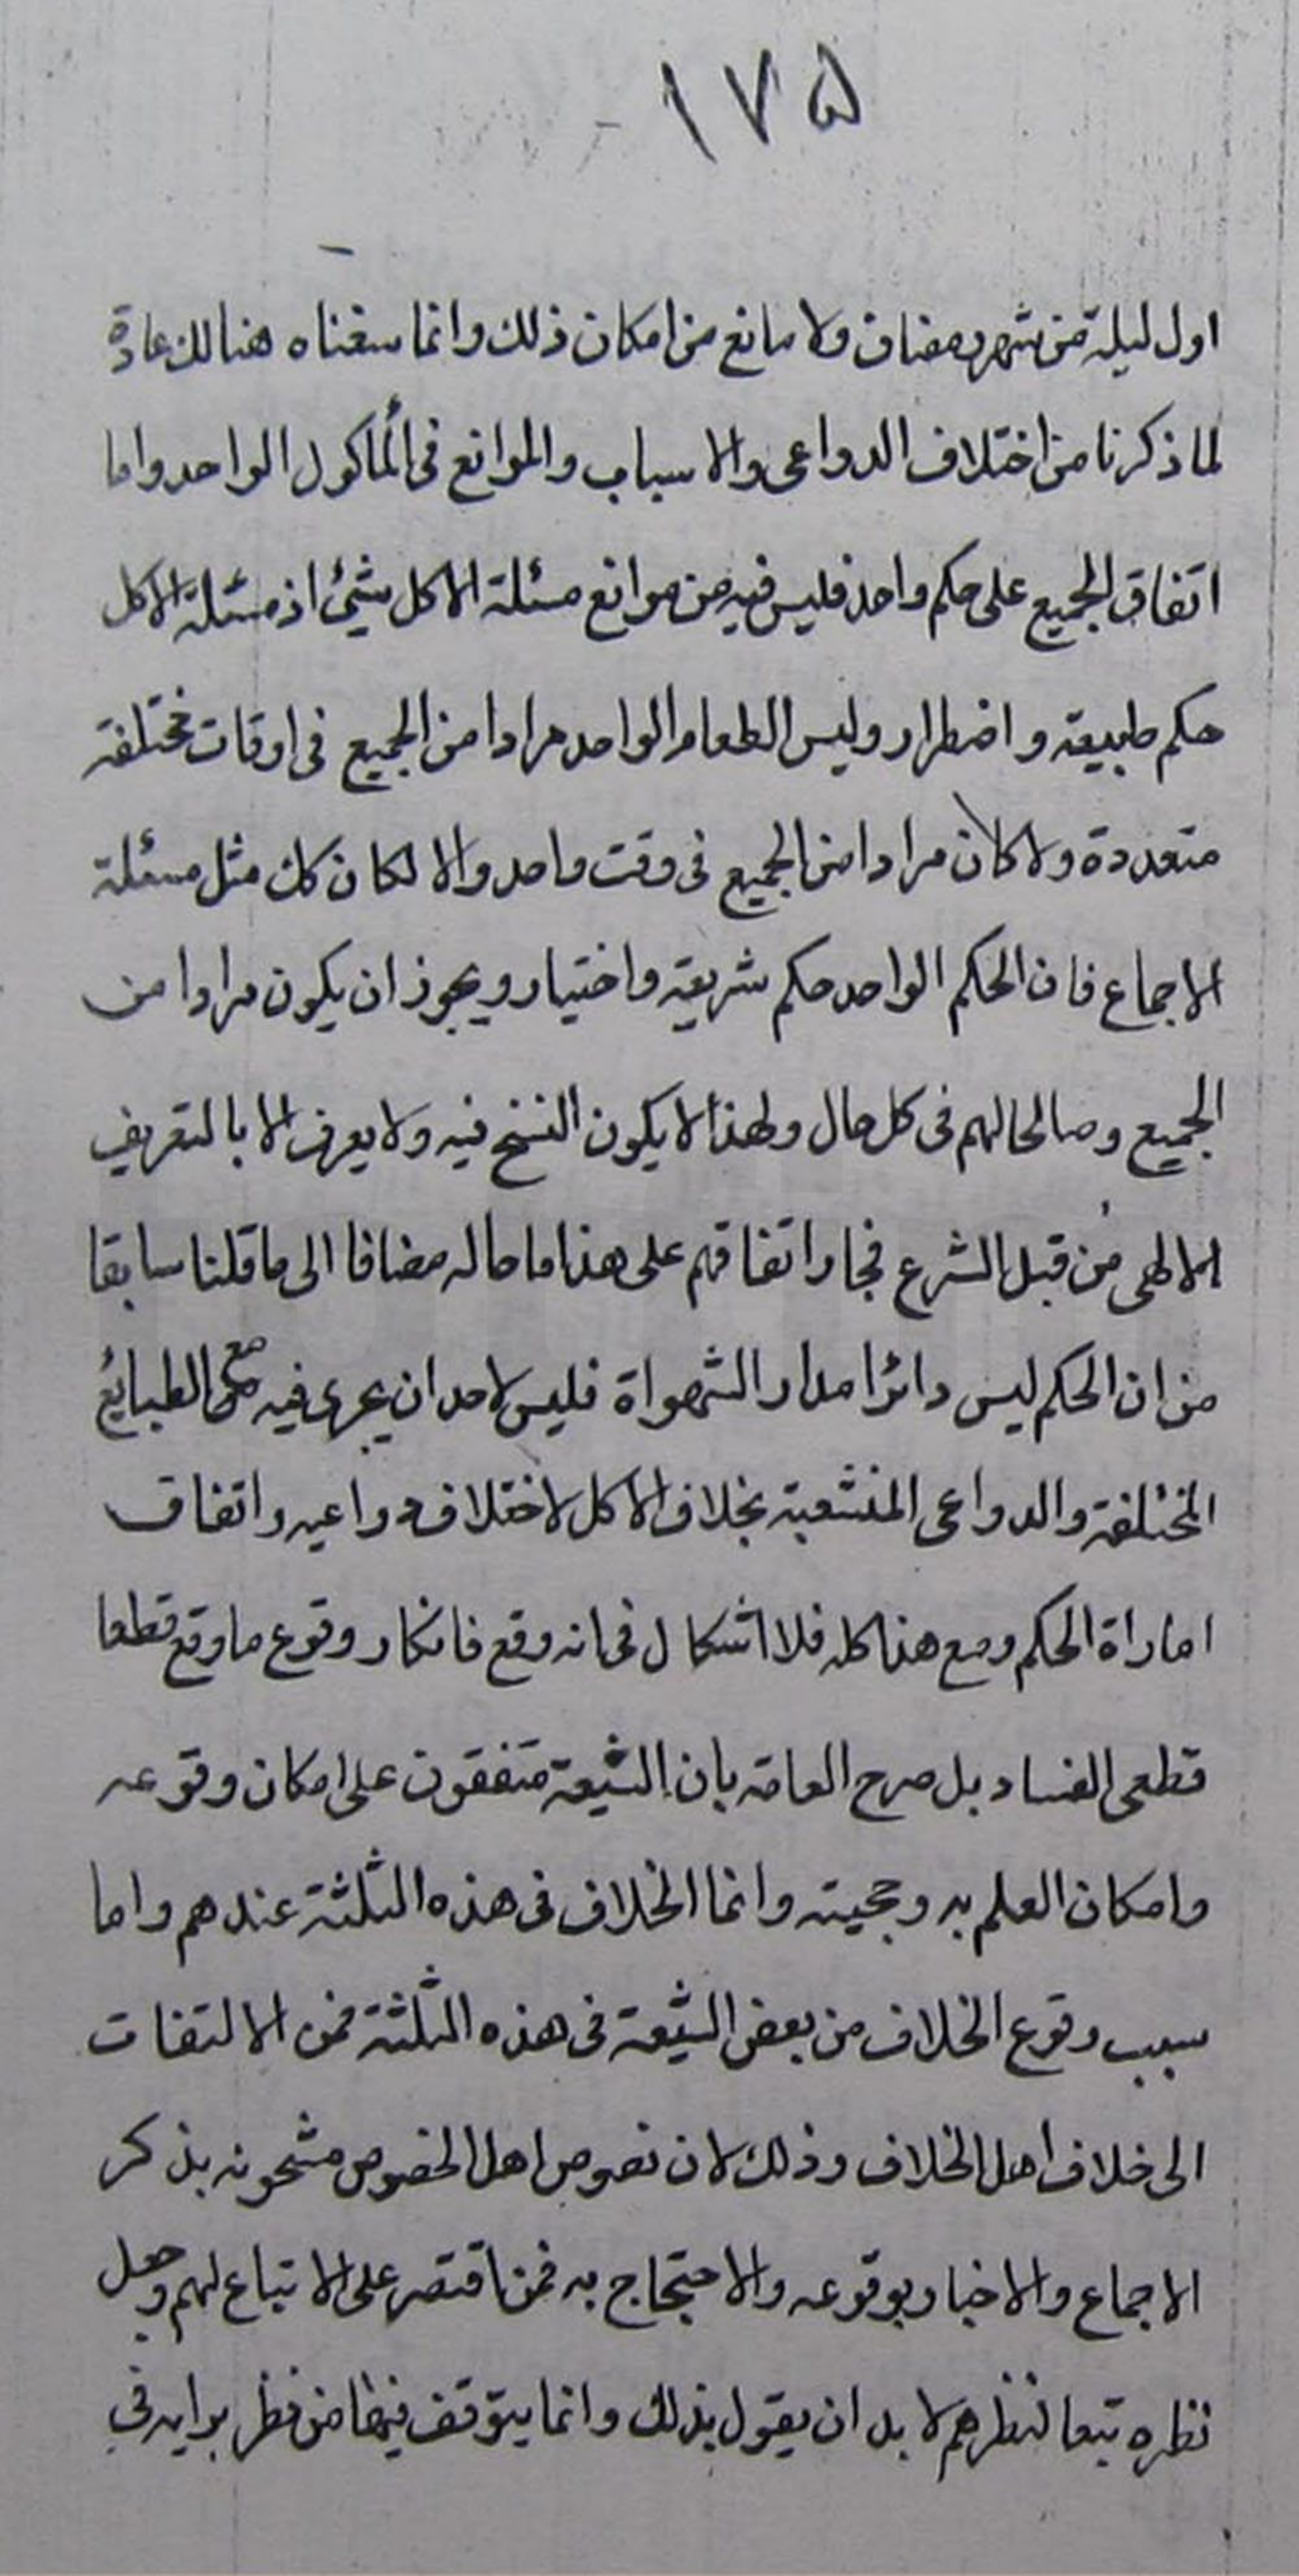 ١٧۵
اول ليلة من شهر رمضان ولا مانع من امكان ذلك وانما منعناه هنالك عادة
لما ذكرنا من اختلاف الدواعى والاسباب والموانع فى المأكول الواحد واما
اتفاق الجميع على حكم واحد فليس فيه من موانع مسئلة الاكل شيئ اذ مسئلة الاكل
حكم طبيعة واضطرار وليس الطعام الواحد مرادا من الجميع فى اوقات مختلفة
متعددة ولا كان مرادا من الجميع فى وقت واحد والا لكان كك مثل مسئلة
الاجماع فان الحكم الواحد حكم شريعة واختيار ويجوز ان يكون مرادا من
الجميع وصالحا لهم فى كل حال ولهذا لا يكون النسخ فيه ولا يعرف الا بالتعريف
الالهى من قبل الشرع فجاز اتفاقهم على هذا ما حاله مضافا الى ما قلنا سابقا
من ان الحكم ليس دائرا مدار الشهواة فليس لاحد ان يجرى فيه مع الطبايع
المختلفة والدواعى المنشعبة بخلاف الاكل لاختلاف دواعيه واتفاق
اماراة الحكم ومع هذا كله فلا اشكال فى انه وقع فانكار وقوع ما وقع قطعا
قطعى الفساد بل صرح العامة بان الشيعة متفقون على امكان وقوعه
وامكان العلم به وحجيته وانما الخلاف فى هذه الثلثة عندهم واما
سبب وقوع الخلاف من بعض الشيعة فى هذه الثلثة فمن الالتفات
الى خلاف اهل الخلاف وذلك لان نصوص اهل الخصوص مشحونه بذكر
الاجماع والاخبار بوقوعه والاحتجاج به فمن اقتصر على الاتباع لهم وجعل
نظره تبعا لنظرهم لا بد ان يقول بذلك وانما يتوقف فيها من نظر برايه فى